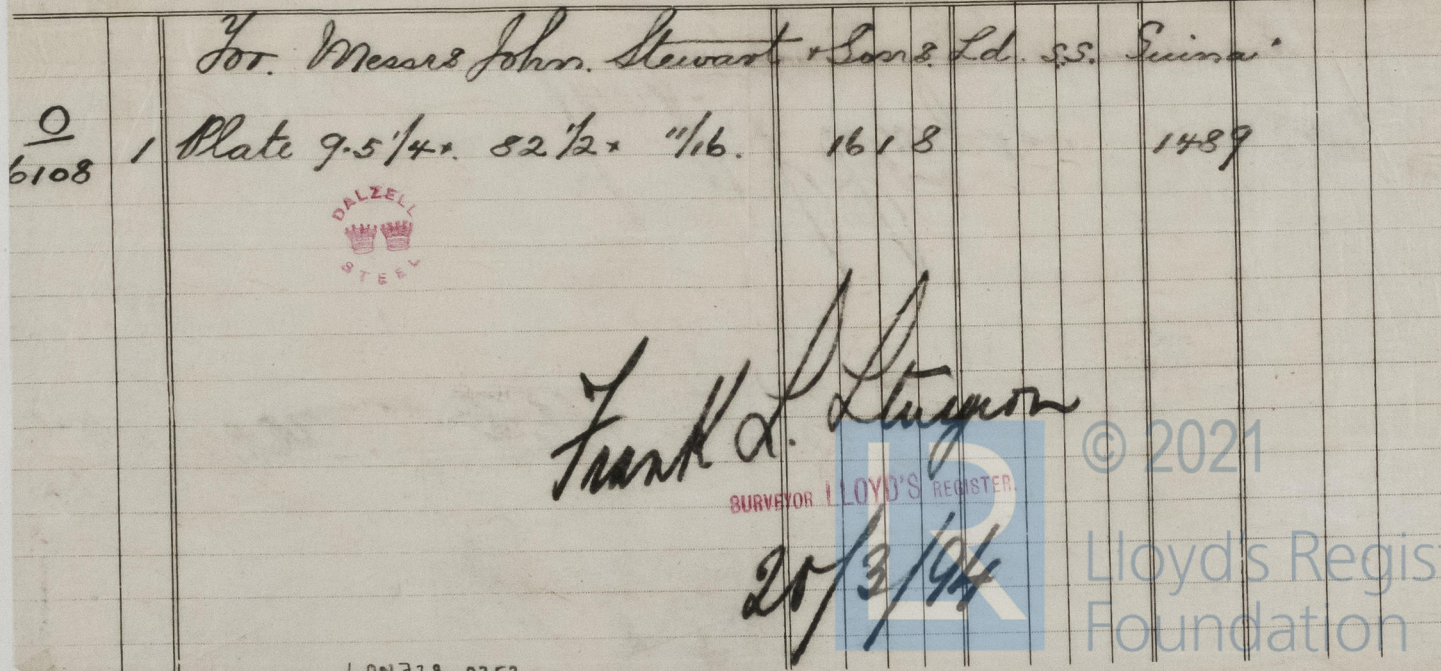 For. Messrs John. Stewart & Sons. Ld. S.S.
O
6108 1 Plate 9.5 1/4 x. 82 1/2 x 11/16. 16 1 8 1489
DALZELL
STEEL
Frank L. Sturgeon
SURVEYOR LLOYD'S REGISTER.
/3/94
LR
© 2021
Lloyd's Regis
Foundation